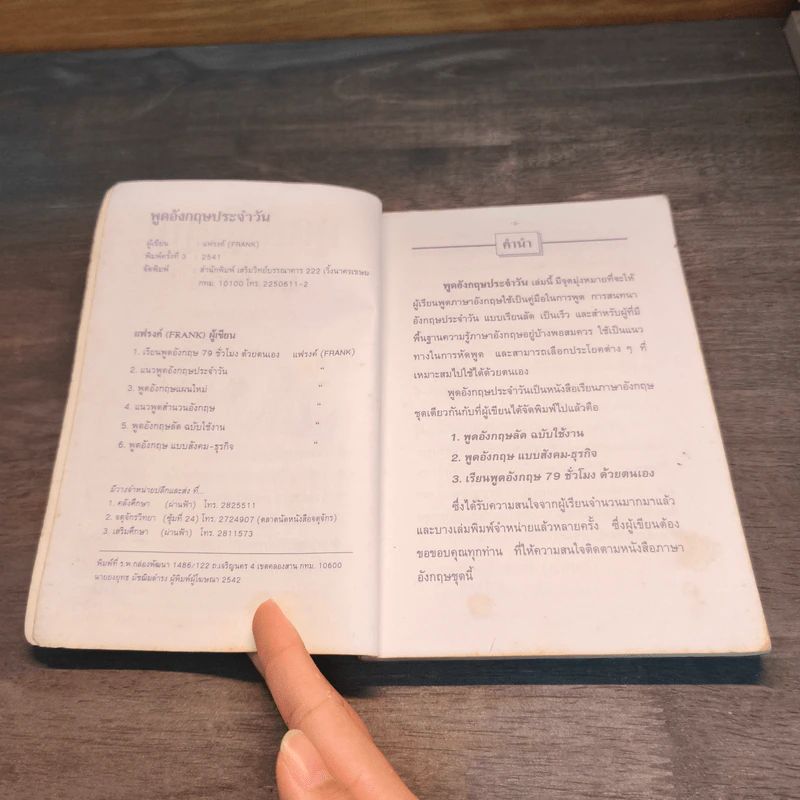 พูดอังกฤษประจำวัน
ผู้เขียน : แฟรงค์ (FRANK)
พิมพ์ครั้งที่ 3 : 2541
จัดพิมพ์ สำนักพิมพ์ เสริมวิทย์บรรณาคาร 222 เวิ้งนาครเขษม
กทม. 10100 โทร. 2250611-2
แฟรงค์ (FRANK) ผู้เขียน
1. เรียนพูดอังกฤษ 79 ชั่วโมง ด้วยตนเอง แฟรงค์ (FRANK)
2. แนวพูดอังกฤษประจำวัน "
3. พูดอังกฤษแผนใหม่ "
4. แนวพูดสำนวนอังกฤษ "
5. พูดอังกฤษลัด ฉบับใช้งาน "
6. พูดอังกฤษ แบบสังคม-ธุรกิจ "
มีวางจำหน่ายปลีกและส่ง ที่...
1. คลังศึกษา (ผ่านฟ้า) โทร. 2825511
2. จตุจักรวิทยา (ซุ้มที่ 24) โทร. 2724907 (ตลาดนัดหนังสือจตุจักร)
3. เสริมศึกษา (ผ่านฟ้า) โทร. 2811573
พิมพ์ที่ ร.พ.กล่องพัฒนา 1486/122 ถ.เจริญนคร 4 เขตคลองสาน กทม. 10600
นายยงยุทธ มัชฌิมดำรง ผู้พิมพ์ผู้โฆษณา 2542
คำนำ
พูดอังกฤษประจำวัน เล่มนี้ มีจุดมุ่งหมายที่จะให้
ผู้เรียนพูดภาษาอังกฤษใช้เป็นคู่มือในการพูด การสนทนา
อังกฤษประจำวัน แบบเรียนลัด เป็นเร็ว และสำหรับผู้ที่มี
พื้นฐานความรู้ภาษาอังกฤษอยู่บ้างพอสมควร ใช้เป็นแนว
ทางในการหัดพูด และสามารถเลือกประโยคต่าง ๆ ที่
เหมาะสมไปใช้ได้ด้วยตนเอง
พูดอังกฤษประจำวันเป็นหนังสือเรียนภาษาอังกฤษ
ชุดเดียวกันกับที่ผู้เขียนได้จัดพิมพ์ไปแล้วคือ
1. พูดอังกฤษลัด ฉบับใช้งาน
2. พูดอังกฤษ แบบสังคม-ธุรกิจ
3. เรียนพูดอังกฤษ 79 ชั่วโมง ด้วยตนเอง
ซึ่งได้รับความสนใจจากผู้เรียนจำนวนมากมาแล้ว
และบางเล่มพิมพ์จำหน่ายแล้วหลายครั้ง ซึ่งผู้เขียนต้อง
ขอขอบคุณทุกท่าน ที่ให้ความสนใจติดตามหนังสือภาษา
อังกฤษชุดนี้